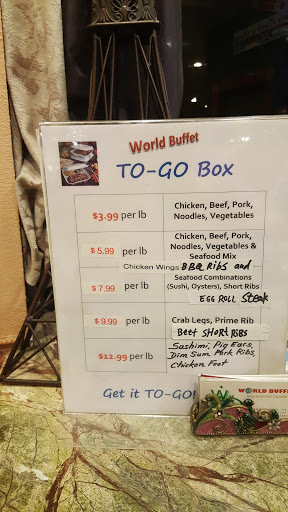 World Buffet
TO-GO Box
$3.99 per lb
Chicken, Beef, Pork,
Noodles, Vegetables
$5.99 per lb
Chicken, Beef, Pork,
Noodles, Vegetables &
Seafood Mix
Chicken Wings BBQ Ribs and
$7.99 per lb
Seafood Combinations
(Sushi, Oysters), Short Ribs
EGG ROLL Steak
$9.99 per lb
Crab Legs, Prime Rib
Beef SHORT RIBS
$12.99 per lb
Sashimi, Pig Ears,
Dim Sum Pork Ribs,
Chicken Foot
Get it TO-GO!
WORLD BUFFE